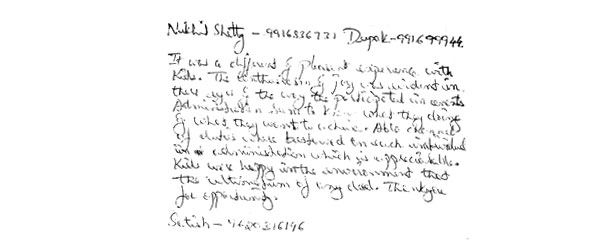 Nikhil Shetty - 9916836731 Deepak - 991699944
It was a different & pleasant experience with
Kids. The Enthusiasm & joy was evident in
their eyes & the way the participated in events
Administration seem to know what they doing
& what they want to achive. Able
of duties were bestowed on each individual
in administration which is appreciable.
Kids were happy in the environment that
the ultimatum of any deed. Thankyou
for opportunity.
Satish - 9620316196